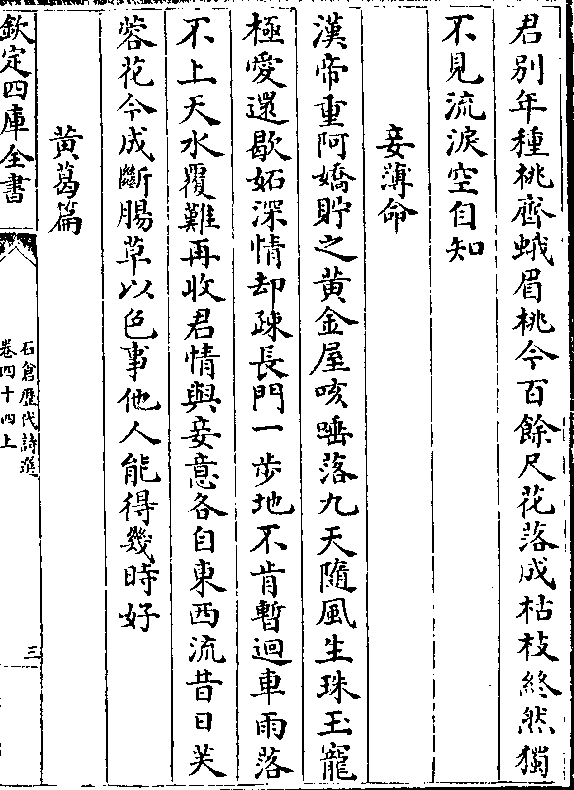 君别年種桃齊蛾眉桃今百餘尺花落成枯枝終然獨
不見流淚空自知
妾薄命
漢帝重阿嬌貯之黄金屋咳唾落九天隨風生珠玉寵
極愛還歇妬深情却疎長門一步地不肯暫迴車雨落
不上天水覆難再收君情與妾意各自東西流昔日芙
蓉花今成斷腸草以色事他人能得幾時好
黄葛篇
欽定四庫全書
石倉歴代詩選
卷四十四上
三